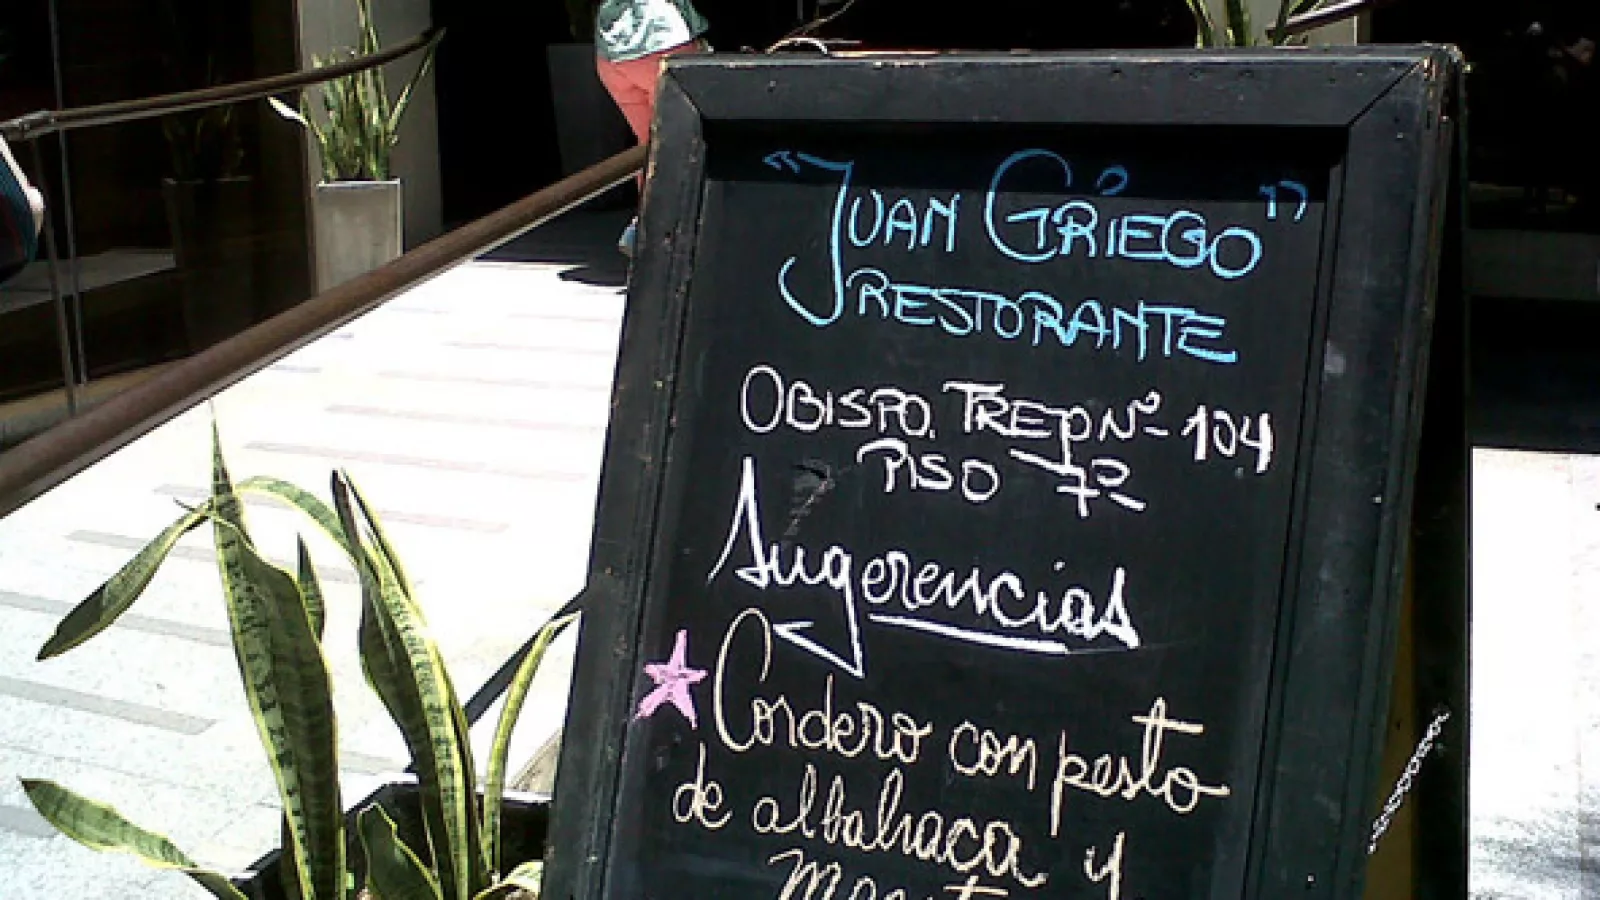 "JUAN GRIEGO"
RESTORANTE
OBISPO. TREJO Nº - 104
PISO 7º
Sugerencias
Cordero con pesto
de albahaca y